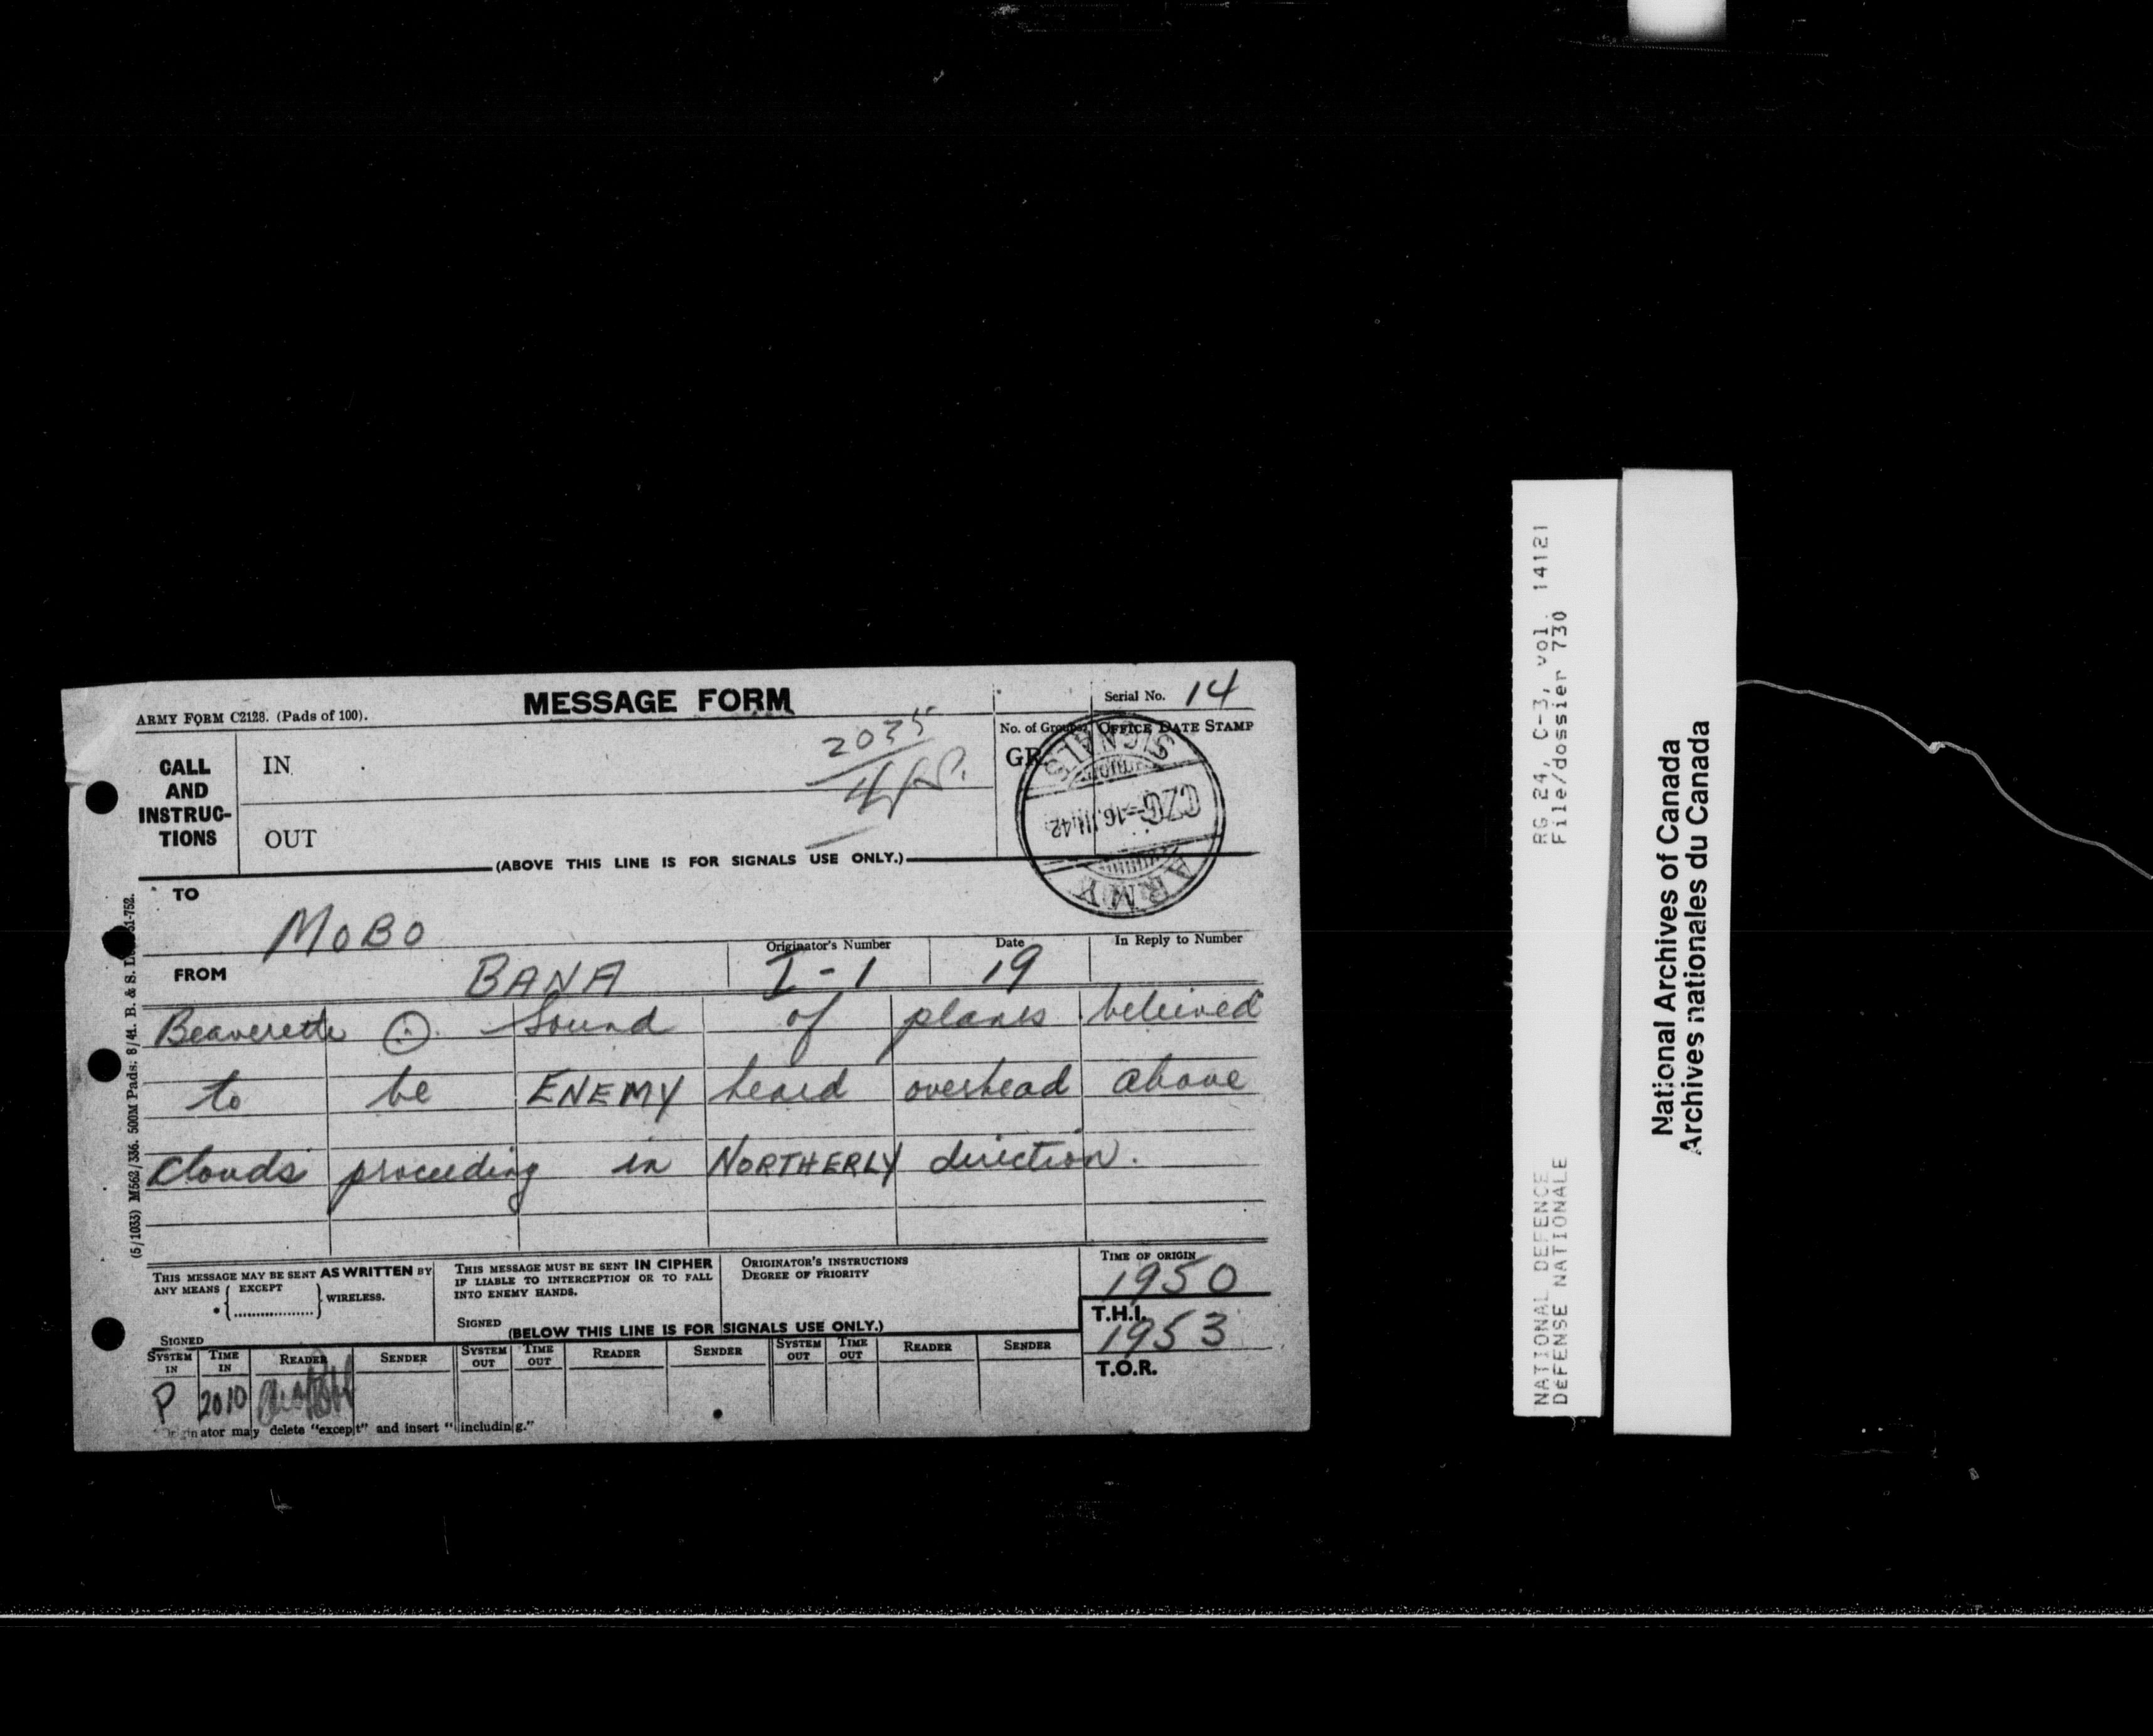 MESSAGE FORM
ARMY FORM C2128. (Pads of 100).
Serial No. 14
No. of Groups
OFFICE DATE STAMP
GR.
CALL
AND
INSTRUC-
TIONS
IN
OUT
2035
SIGNALS
CZG
ARMY
(ABOVE THIS LINE IS FOR SIGNALS USE ONLY.)
TO
MOBO
FROM
BANA
Originator's Number
I-1
Date
19
In Reply to Number
Beaverette ⊙ Sound of planes beleived
to be ENEMY heard overhead above
clouds proceeding in NORTHERLY direction.
(5/1033) M562/336. 500M Pads. 8/41. B. & S. 51-752.
THIS MESSAGE MAY BE SENT AS WRITTEN BY
ANY MEANS { EXCEPT
* { .................. } WIRELESS.
SIGNED
THIS MESSAGE MUST BE SENT IN CIPHER
IF LIABLE TO INTERCEPTION OR TO FALL
INTO ENEMY HANDS.
SIGNED
ORIGINATOR'S INSTRUCTIONS
DEGREE OF PRIORITY
TIME OF ORIGIN
1950
T.H.I.
1953
T.O.R.
(BELOW THIS LINE IS FOR SIGNALS USE ONLY.)
SYSTEM IN TIME IN READER SENDER SYSTEM OUT TIME OUT READER SENDER SYSTEM OUT TIME OUT READER SENDER
P 2010
*Originator may delete "except" and insert "including."
RG 24, C-3, vol. 14121
File/dossier 730
NATIONAL DEFENCE
DÉFENSE NATIONALE
National Archives of Canada
Archives nationales du Canada